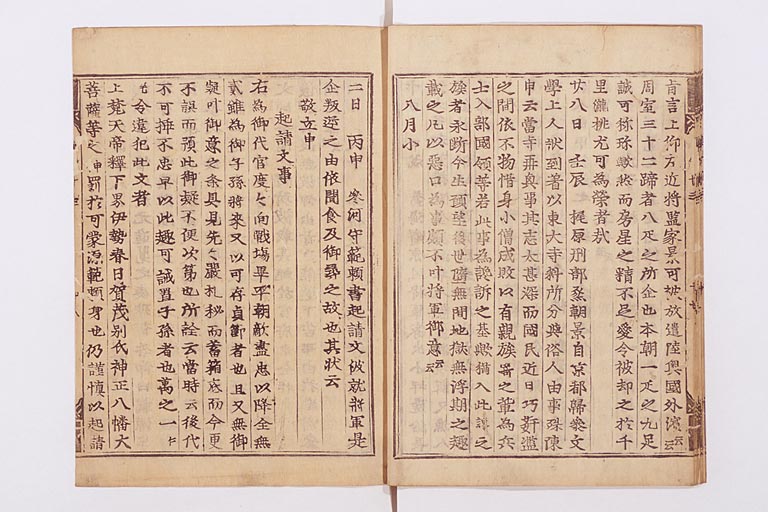 肯言上仰右近將監家景可被放遣陸奥國外濱云云
周室三十二蹄者八疋之所企也本朝一疋之九足
誠可稱珎歟然而房星之精不足愛令被却之於千
里瀧桃尤可為榮者哉
廿八日 壬辰 梶原刑部烝朝景自京都歸参文
學上人状到著以東大寺料所分與俗人由事殊陳
申云當寺再興事其志太甚深而國民近日巧奸濫
之間依不物惜身小僧成敗以有親族
士入部國領等若此事為讒訴之基歟猶入此
族者永断今生預後世墮無間地獄無浮期之趣
載之凡以惡口為事頗不叶將軍御意云云
八月小
二日 丙申 參河守範頼書起請文被献將軍是
企叛逆之由依聞食及御尋之故也其状云
敬立申
起請文事
右為御代官度々向戰場畢平朝敵盡愚以降全無
貳雖為御子孫將來又以可存貞節者也且又無御
疑叶御意之条具見先々嚴札秘而蓄箱底而今更
不誤而預此御疑不便次第也所詮云當時云後代
不可挿不忠早以此趣可誡置子孫者也萬之一
令違犯此文者
上梵天帝釋下界伊勢春日賀茂別氏神正八幡大
菩薩等之神罰於可蒙源範頼身也仍謹慎以起請